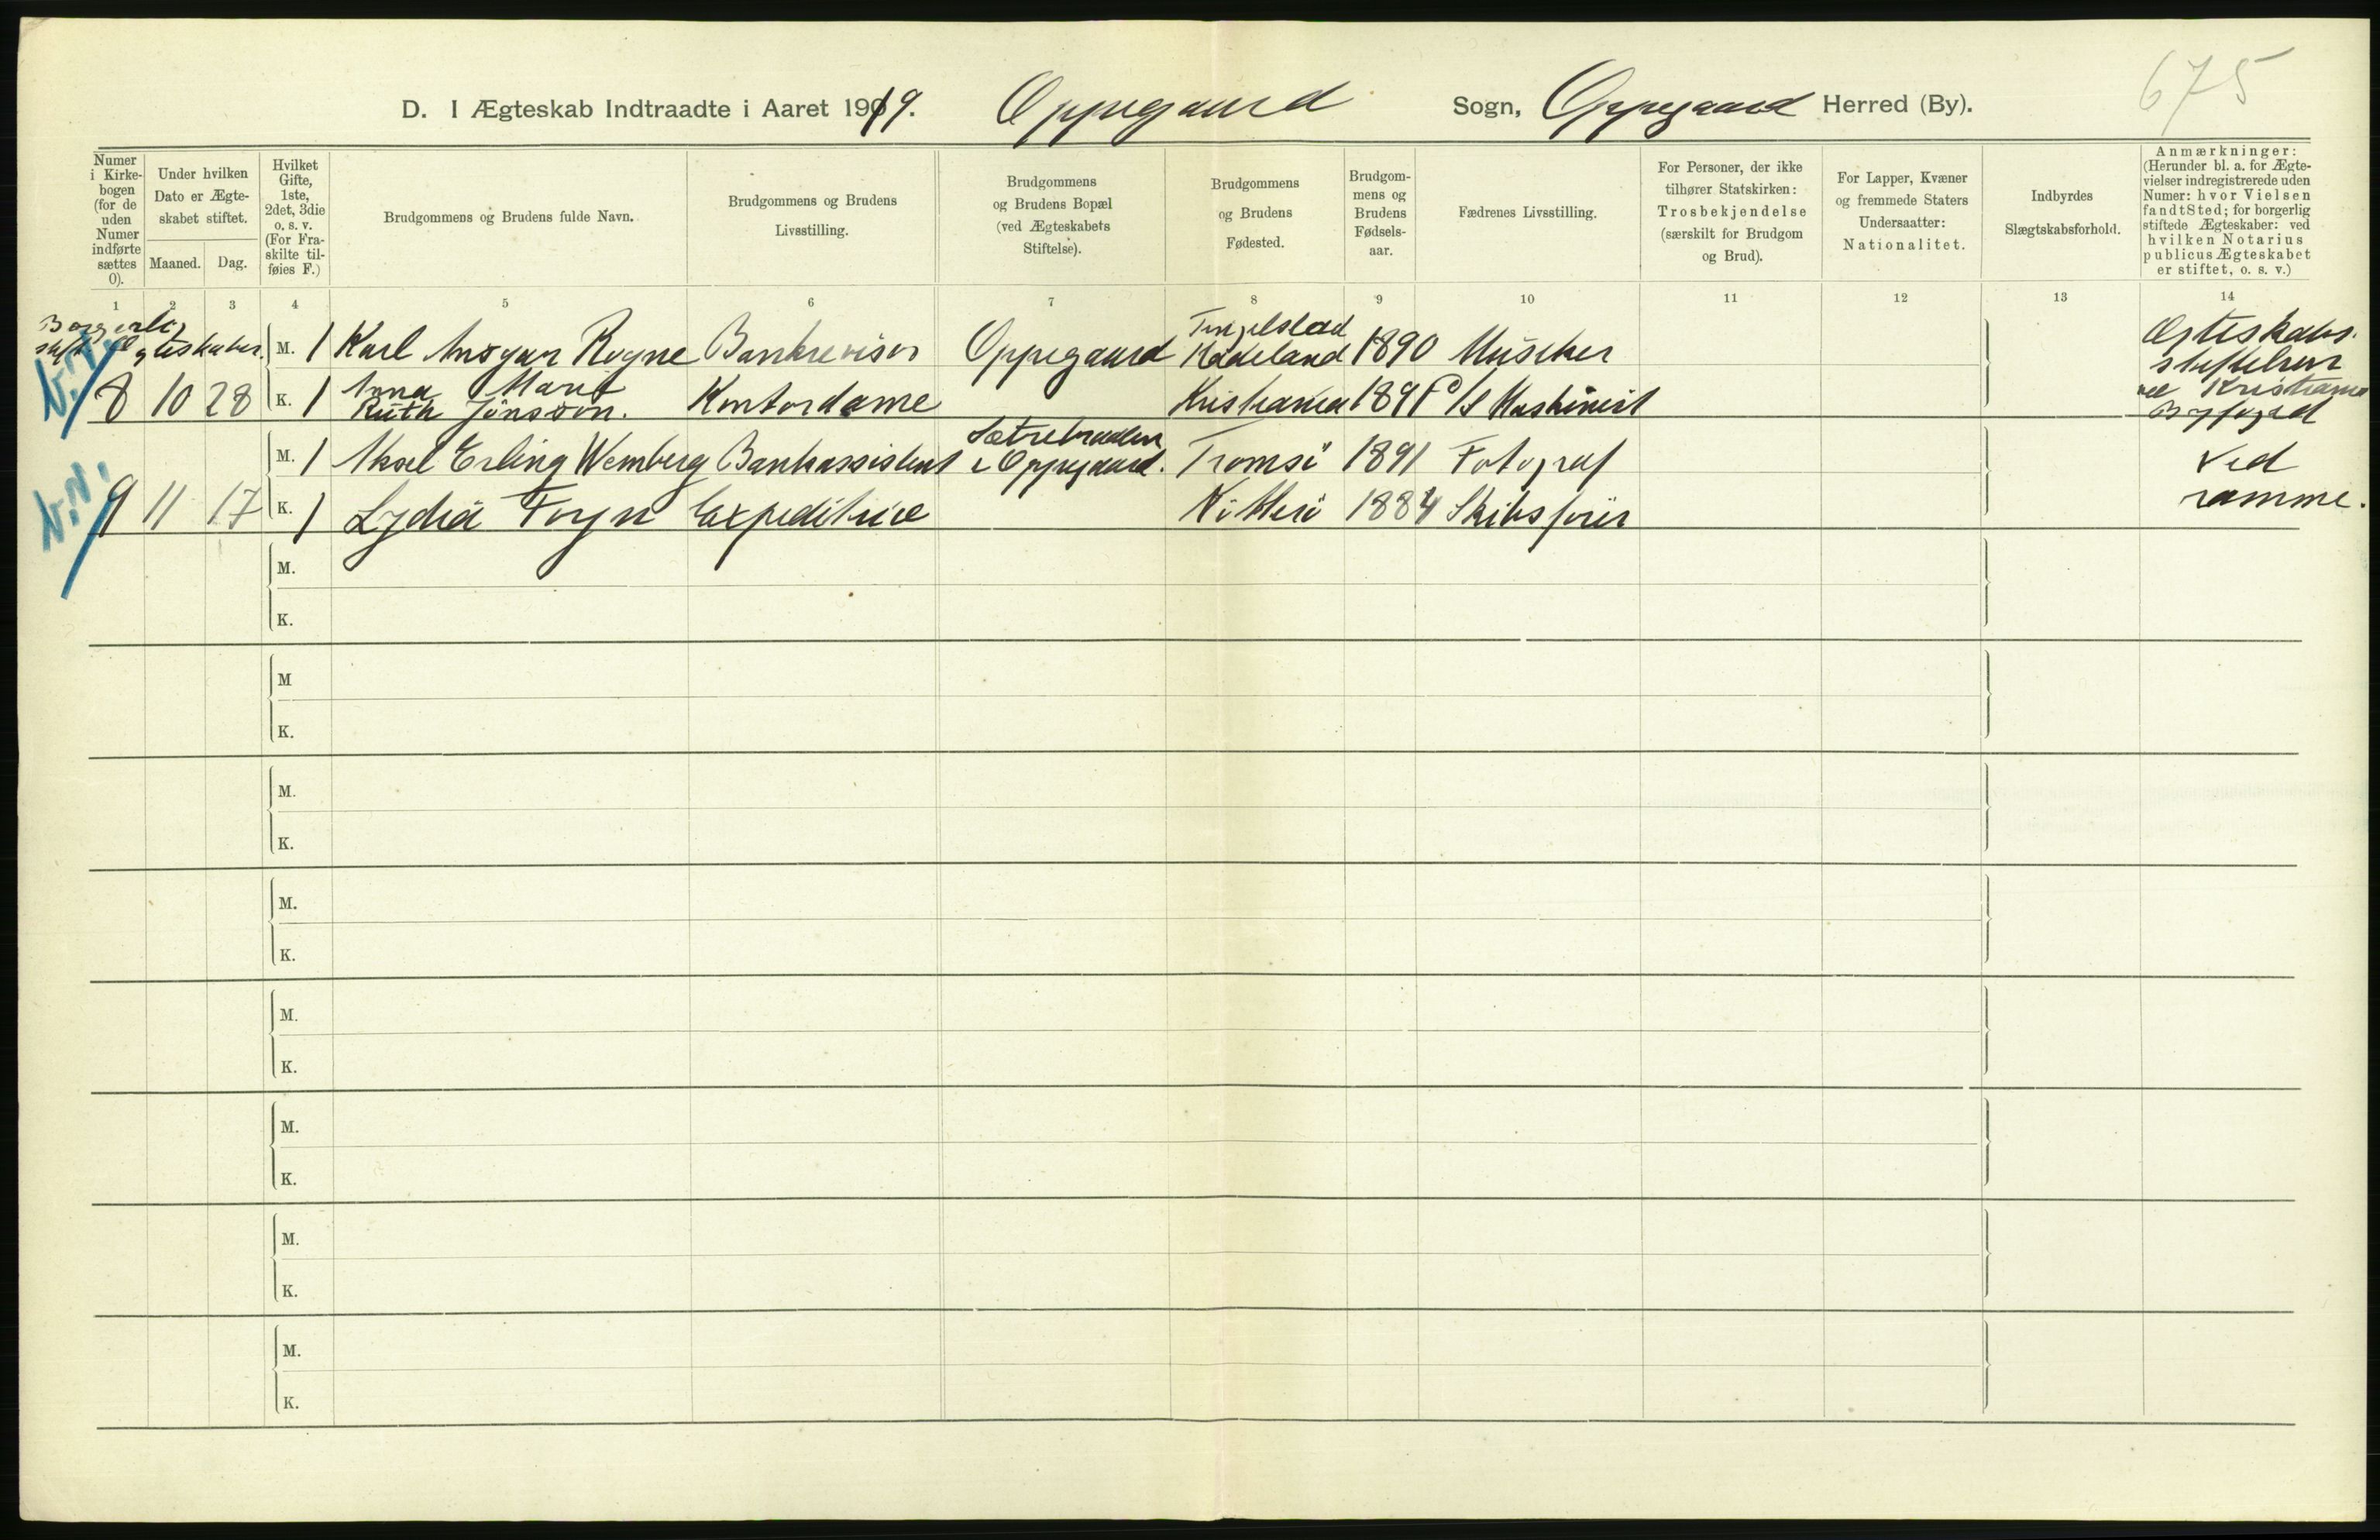 675
D. I Ægteskab Indtraadte i Aaret 1919. Oppegaard Sogn, Oppegaard Herred (By).
Numer i Kirkebogen (for de uden Numer indførte sættes 0).
Under hvilken Dato er Ægteskabet stiftet.
Maaned. Dag.
Hvilket Gifte, 1ste, 2det, 3die o. s. v. (For Fraskilte tilføies F.)
Brudgommens og Brudens fulde Navn.
Brudgommens og Brudens Livsstilling.
Brudgommens og Brudens Bopæl (ved Ægteskabets Stiftelse).
Brudgommens og Brudens Fødested.
Brudgommens og Brudens Fødselsaar.
Fædrenes Livsstilling.
For Personer, der ikke tilhører Statskirken: Trosbekjendelse (særskilt for Brudgom og Brud).
For Lapper, Kvæner og fremmede Staters Undersaatter: Nationalitet.
Indbyrdes Slægtskabsforhold.
Anmærkninger: (Herunder bl. a. for Ægtevielser indregistrerede uden Numer: hvor Vielsen fandt Sted; for borgerlig stiftede Ægteskaber: ved hvilken Notarius publicus Ægteskabet er stiftet, o. s. v.)
1 2 3 4 5 6 7 8 9 10 11 12 13 14
Borgerlig
stift. Ægteskaber.
M. 1 Karl Ansgar Rogne Bankrevisor Oppegaard Tingelstad Hadeland 1890 Musiker
Ægteskabs.
stiftelsen
ved Kristiania
Byfoged
N.N.
8 10 28 K. 1 Anna Marit Ruth Jönsson. Kontordame Kristiania 1891 Maskinist
M. 1 Aksel Erling Wemberg Bankassistent Sætrebraaten i Oppegaard. Tromsö 1891 Fotograf Ved
N.N.
9 11 17 K. 1 Lydia Foyn Expeditrice Nötterö 1884 Skibsförer samme.
M.
K.
M
K.
M.
K.
M.
K.
M.
K.
M.
K.
M.
K.
M.
K.